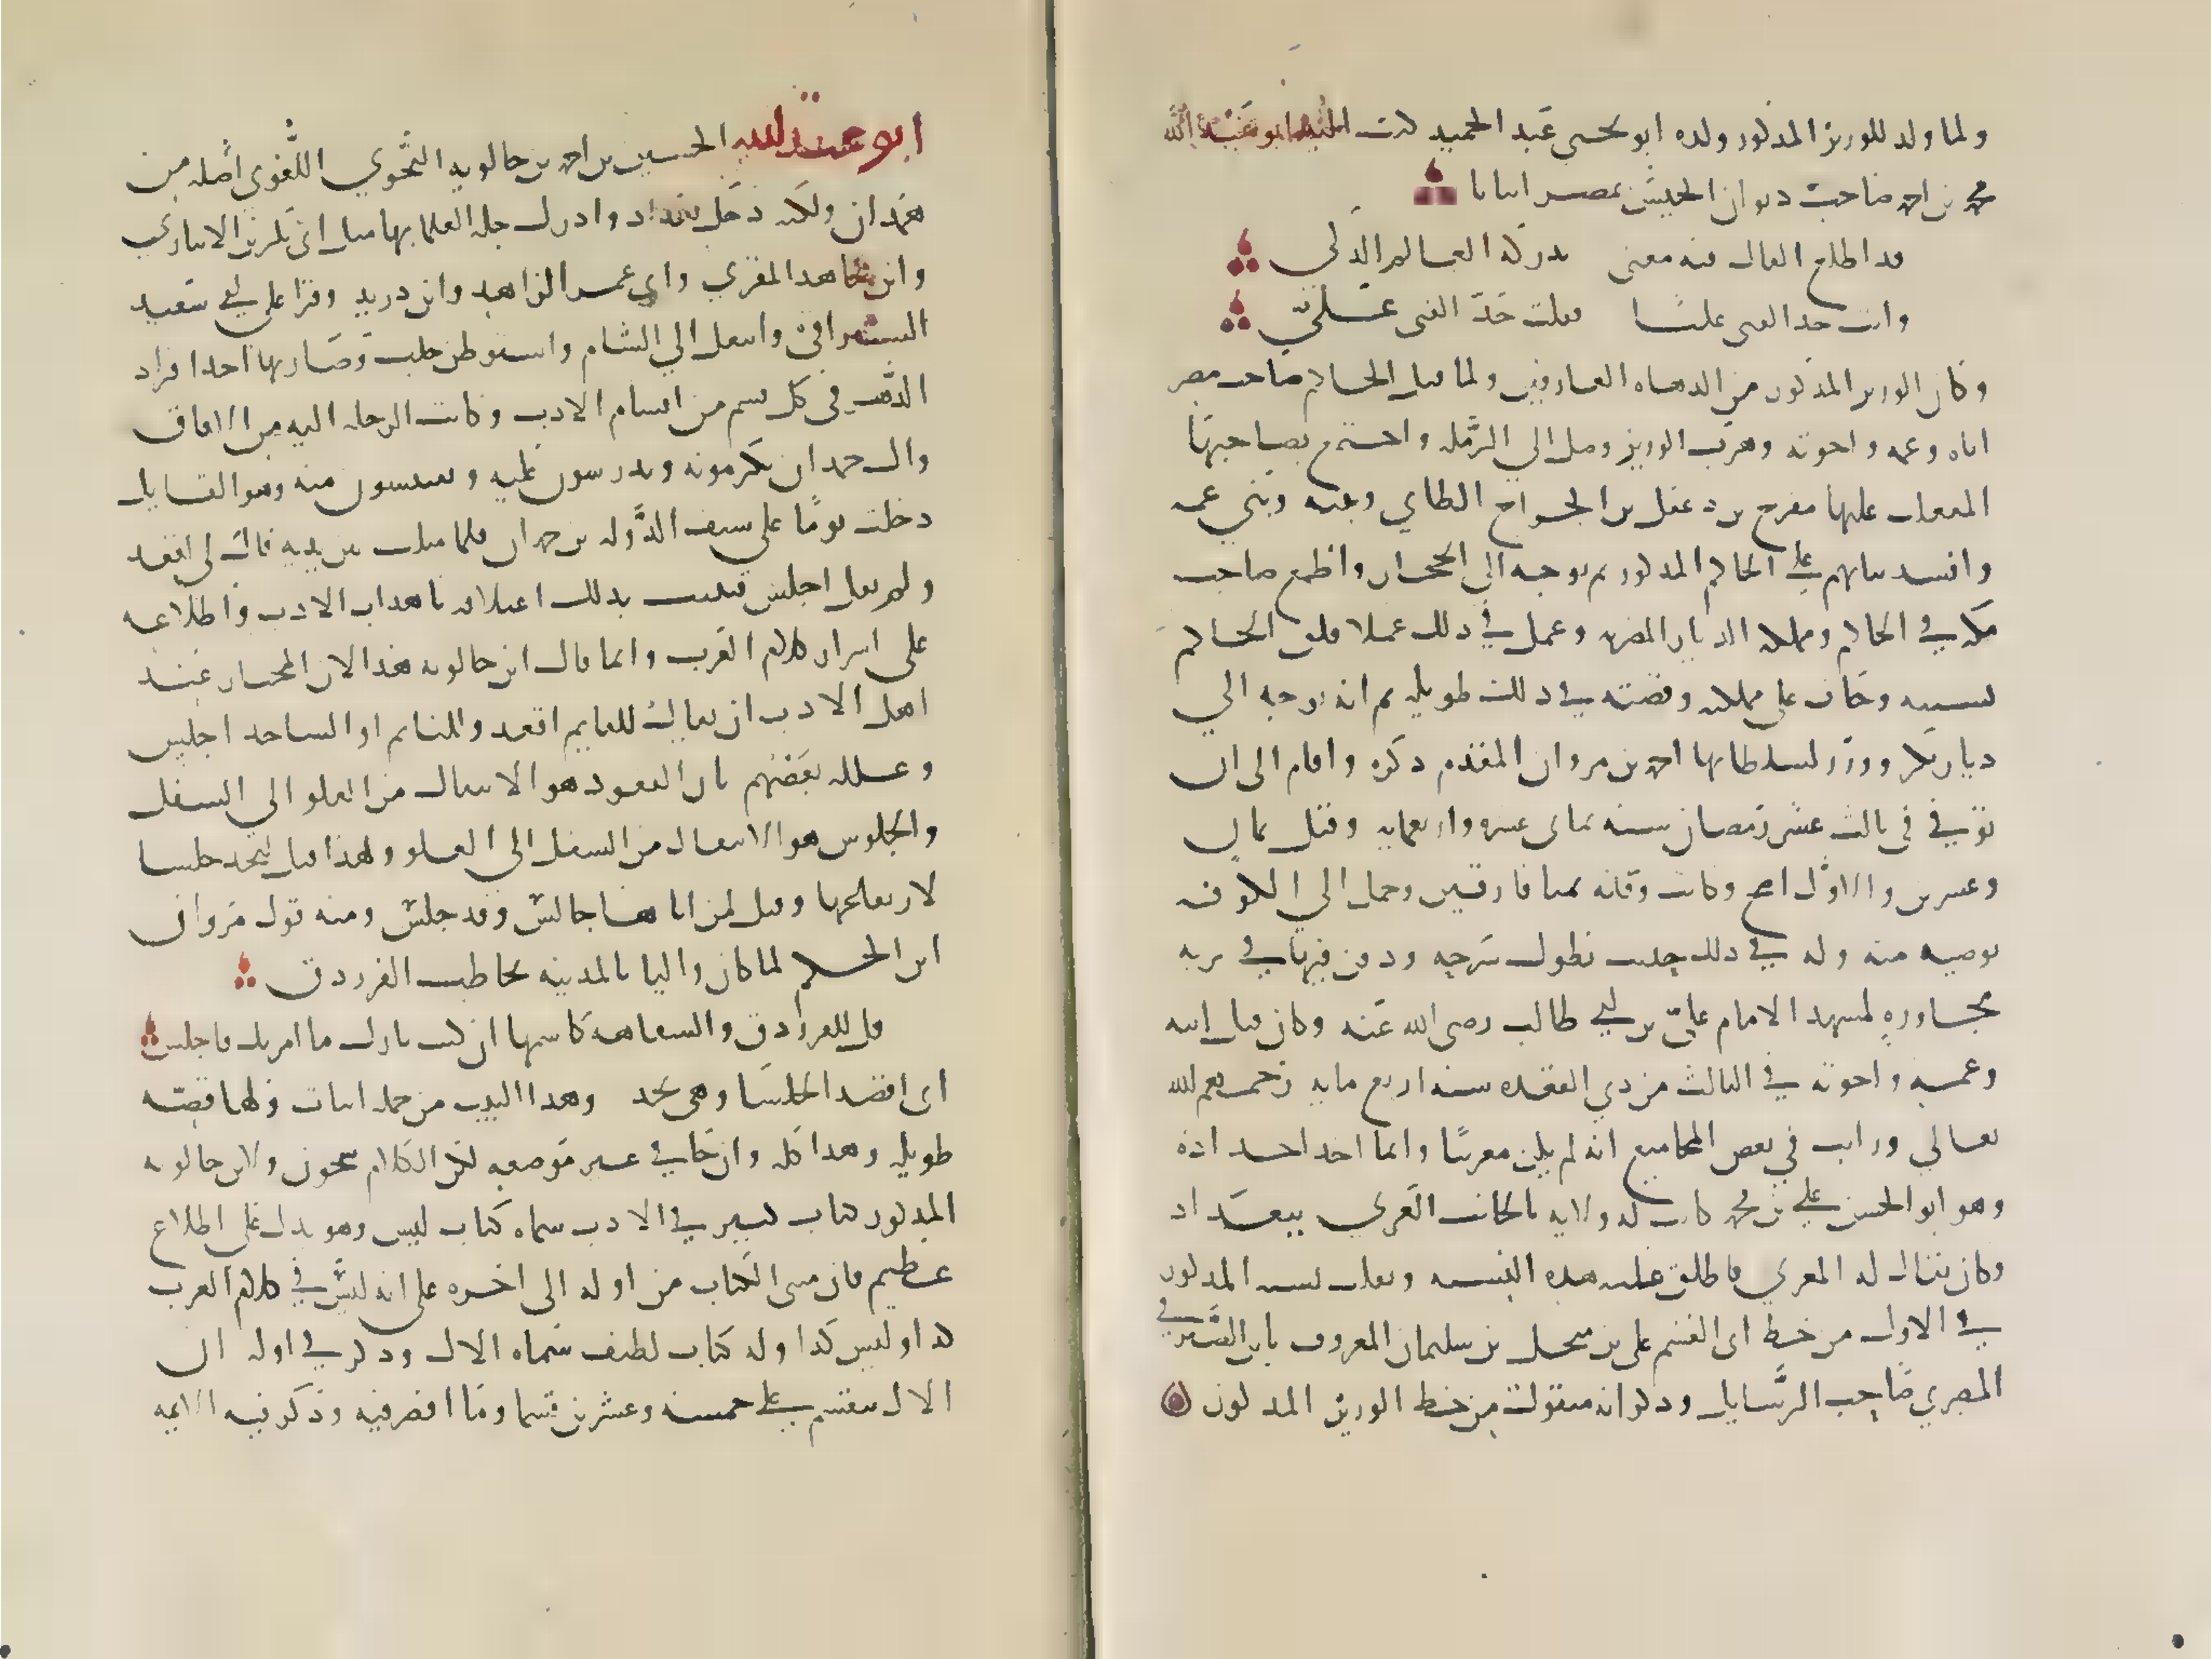 ولما ولد للوزير المذكور ولده ابو يحيى عبد الحميد كتب اليه ابو عبد الله
محمد بن احمد صاحب ديوان الجيش بمصر ابياتا
قد اطلع الفال منه معنى يدركه العالم الذكي
وانت جد الفتى عليا فقلت جد الفتى علي
وكان الوزير المذكور من الدهاه العارفين ولما قتل الحاكم صاحب مصر
اباه وعمه واخوته وهرب الوزير وصل الي الرمله واجتمع بصاحبها
المتغلب عليها مفرج بن دغفل بن الجراح الطاي وبنيه وبني عمه
وافسد نياتهم علي الحاكم المذكور ثم توجه الى الحجاز واطمع صاحب
مكه في الحاكم ومملكه الديار المصريه وعمل في ذلك عملا قلق الحاكم
بسببه وخاف على مملكته وقصته في ذلك طويله ثم انه توجه الي
ديار بكر ووزر لسلطانها احمد بن مروان المقدم ذكره واقام الى ان
توفي في ثالث عشر رمضان سنه ثماني عشره واربعمايه وقيل ثمان
وعشرين والاول اصح وكانت وفاته بميافارقين وحمل الي الكوفه
بوصيه منه وله في ذلك حديث يطول شرحه ودفن فيها في تربه
مجاورة لمشهد الامام علي بن ابي طالب رضى الله عنه وكان قتل ابيه
وعمه واخوته في الثالث من ذي القعده سنه اربع مايه رحمهم الله
تعالي ورايت في بعض المجاميع انه لم يكن مغربيا وانما احد اجداده
وهو ابو الحسن علي بن محمد كانت له ولايه بالجانب الغربي ببغداد
وكان يقال له المغربي فاطلق عليه هذه النسبه ونقلت نسبه المذكور
في الاول من خط ابى القسم على بن منجب بن سليمان المعروف بابن الصيرفي
المصري صاحب الرسايل وذكر انه منقول من خط الوزير المذكور
ابو عبد الله الحسين بن احمد بن خالويه النحوي اللغوي اصله من
همدان ولكنه دخل بغداد وادرك جله العلما بها مثل ابن بكر بن الانباري
وابن مجاهد المقري وابي عمر الزاهد وابن دريد وقرا على ابي سعيد
السيرافي وانتقل الي الشام واستوطن حلب وصار بها احد افراد
الدهر في كل قسم من اقسام الادب وكانت الرحله اليه من الافاق
وال حمدان يكرمونه ويدرسون عليه ويقتبسون منه وهو القايل
دخلت يوما على سيف الدوله بن حمدان فلما مثلت بين يديه قال لي اقعد
ولم يقل اجلس فتبينت بذلك اعتلاقه باهداب الادب واطلاعه
على اسرار كلام العرب وانما قال ابن خالويه هذا لان المختار عند
اهل الادب ان يقال للقايم اقعد وللنايم او الساجد اجلس
وعلله بعضهم بان القعود هو الانتقال من العلو الى السفل
والجلوس هو الانتقال من السفل الى العلو ولهذا قيل لنجد جلسا
لارتفاعها وقيل لمن اتاها جالس وقد جلس ومنه قول مروان
ابن الحكم لما كان واليا بالمدينه يخاطب الفرزدق
قل للفرزدق والسفاهه كاسمها ان كنت تارك ما امرتك فاجلس
اى اقصد الجلسا وهى نجد وهذا البيت من جمله ابيات ولها قصه
طويله وهذا كله وان جا في غير موضعه لكن الكلام شجون ولابن خالويه
المذكور كتاب كبير في الادب سماه كتاب ليس وهو يدل على اطلاع
عظيم فان مبنى الكتاب من اوله الى اخره على انه ليس في كلام العرب
كذا وليس كذا وله كتاب لطيف سماه الال وذكر في اوله ان
الال ينقسم على خمسه وعشرين قسما وما اقصر فيه وذكر فيه الايمه